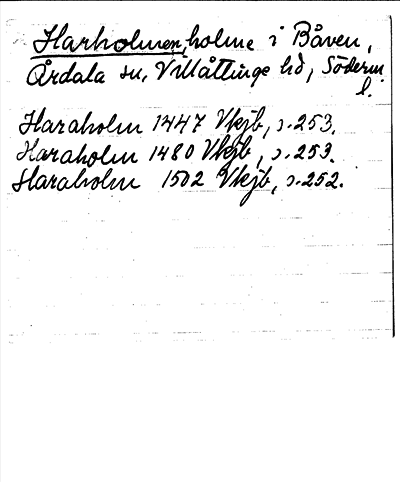 Harholmen, holme i Båven,
Årdala sn, Villåttinge hd, Söderm
l.
Haraholm 1447 Vkjb, s. 253.
Haraholm 1480 Vkjb, s. 253.
Haraholm 1502 Vkjb, s. 252.